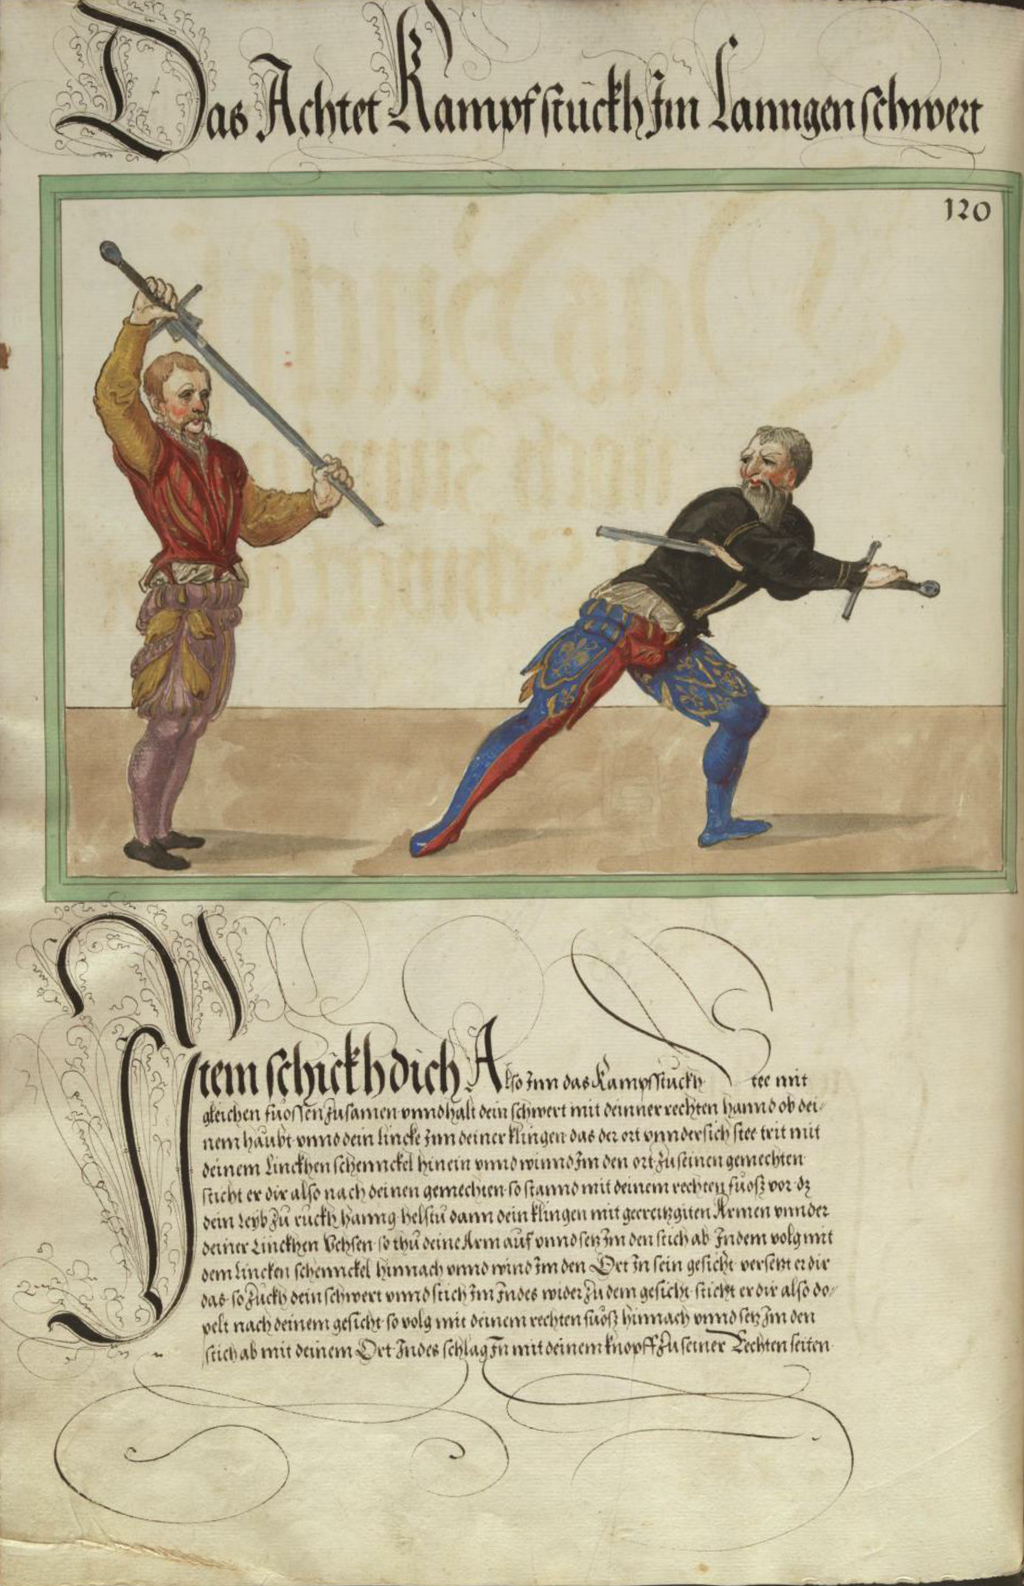 Das Achtet Kampfstückh Im Lanngen schwert
120
Item schickh dich Also Inn das Kampfstückh stee mit
gleichen fuossen zusamen vnnd halt dein schwert mit deinner rechten hannd ob dei-
nem haubt vnnd dein lincke Inn deiner klingen das der ort vnndersich stee trit mit
deinem Linckhen schennckel hinein vnnd winnd Im den ort zu seinen gemechten
sticht er dir also nach deinen gemechten so stannd mit deinem rechten fuosz vor dz
dein Leyb zu ruckh hanng helstu dann dein klingen mit gecreitzgiten Armen vnnder
deiner Linckhen Vchsen so thu deine Arm auf vnnd setz Im den stich ab Indem volg mit
dem Lincken schennckel hinnach vnnd wind Im den Ort In sein gesicht versetzt er dir
das so zuckh dein schwert vnnd stich Im Inndes wider zu dem gesicht sticht er dir also do-
pelt nach deinem gesicht so volg mit deinem rechten fuosz hinnach vnnd setz Im den
stich ab mit deinem Ort Indes schlag In mit deinem knopff zu seiner Rechten seiten